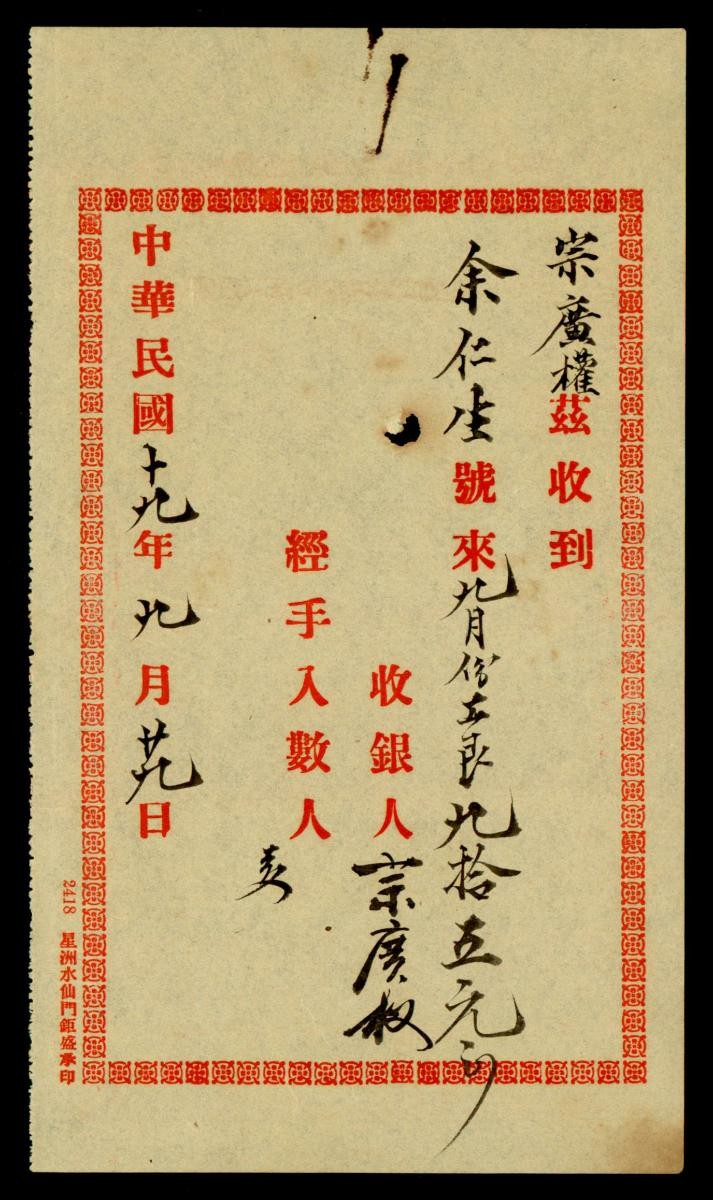 宗廣權茲收到
余仁生號來九月份工艮九拾五元正
收銀人宗廣权
經手入數人
中華民國十九年九月廿九日
2418 星洲水仙門鉅盛承印